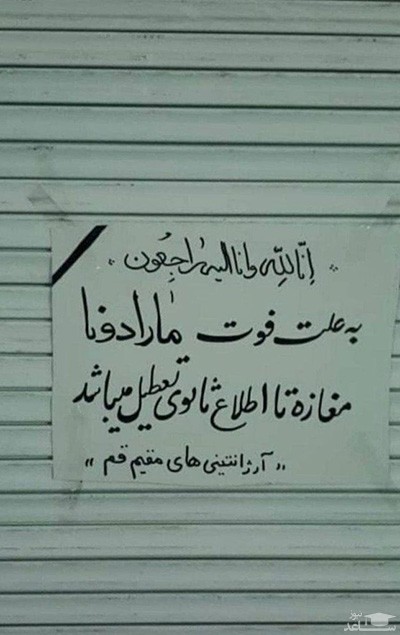 إنّا لِلّه وانا الیه راجِعُون
به علت فوت مارادونا
مغازه تا اطلاع ثانوی تعطیل میباشد
" آرژانتینی های مقیم قم "